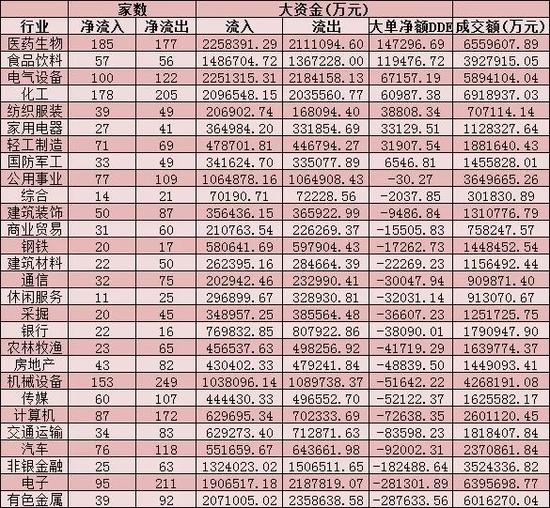 家数 大资金(万元)
行业 净流入 净流出 流入 流出 大单净额DDE 成交额(万元)
医药生物 185 177 2258391.29 2111094.60 147296.69 6559607.89
食品饮料 57 56 1486704.72 1367228.00 119476.72 3927915.05
电气设备 100 122 2251315.31 2184158.13 67157.19 5894104.04
化工 178 205 2096548.15 2035560.77 60987.38 6918937.03
纺织服装 39 49 206902.74 168094.40 38808.34 707114.14
家用电器 27 41 364984.20 331854.69 33129.51 1128327.64
轻工制造 71 69 478701.81 446794.27 31907.54 1881640.43
国防军工 33 49 341624.70 335077.89 6546.81 1455828.01
公用事业 77 109 1064878.16 1064908.43 -30.27 3649665.26
综合 14 21 70190.71 72228.56 -2037.85 301830.89
建筑装饰 50 87 356436.15 365922.99 -9486.84 1310776.79
商业贸易 31 60 210763.54 226269.37 -15505.83 758247.57
钢铁 20 17 580641.69 597904.43 -17262.73 1448452.54
建筑材料 22 50 262395.16 284664.39 -22269.23 1156492.44
通信 32 75 202942.46 232990.41 -30047.94 909871.40
休闲服务 11 25 296899.67 328930.81 -32031.14 913070.67
采掘 20 45 348957.25 385564.48 -36607.23 1251725.75
银行 22 16 769832.85 807922.86 -38090.01 1790947.90
农林牧渔 23 65 456537.63 498256.92 -41719.29 1639774.37
房地产 43 82 430402.33 479241.84 -48839.50 1449093.41
机械设备 153 249 1038096.14 1089738.37 -51642.22 4268191.08
传媒 60 107 444430.33 496552.70 -52122.37 1625582.17
计算机 87 172 629695.34 702333.69 -72638.35 2601120.45
交通运输 34 83 629273.40 712871.63 -83598.23 1818407.84
汽车 76 118 551659.67 643661.98 -92002.31 2370861.84
非银金融 25 63 1324023.02 1506511.65 -182488.64 3524336.82
电子 95 211 1906517.18 2187819.07 -281301.89 6395698.77
有色金属 39 92 2071005.02 2358638.58 -287633.56 6016270.04